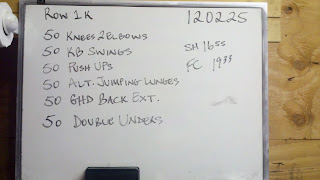 ROW 1K
120225
50 KNEES 2 ELBOWS
50 KB SWINGS
50 PUSH UPS
50 ALT. JUMPING LUNGES
50 GHD BACK EXT.
50 DOUBLE UNDERS
SH 1655
FC 1933